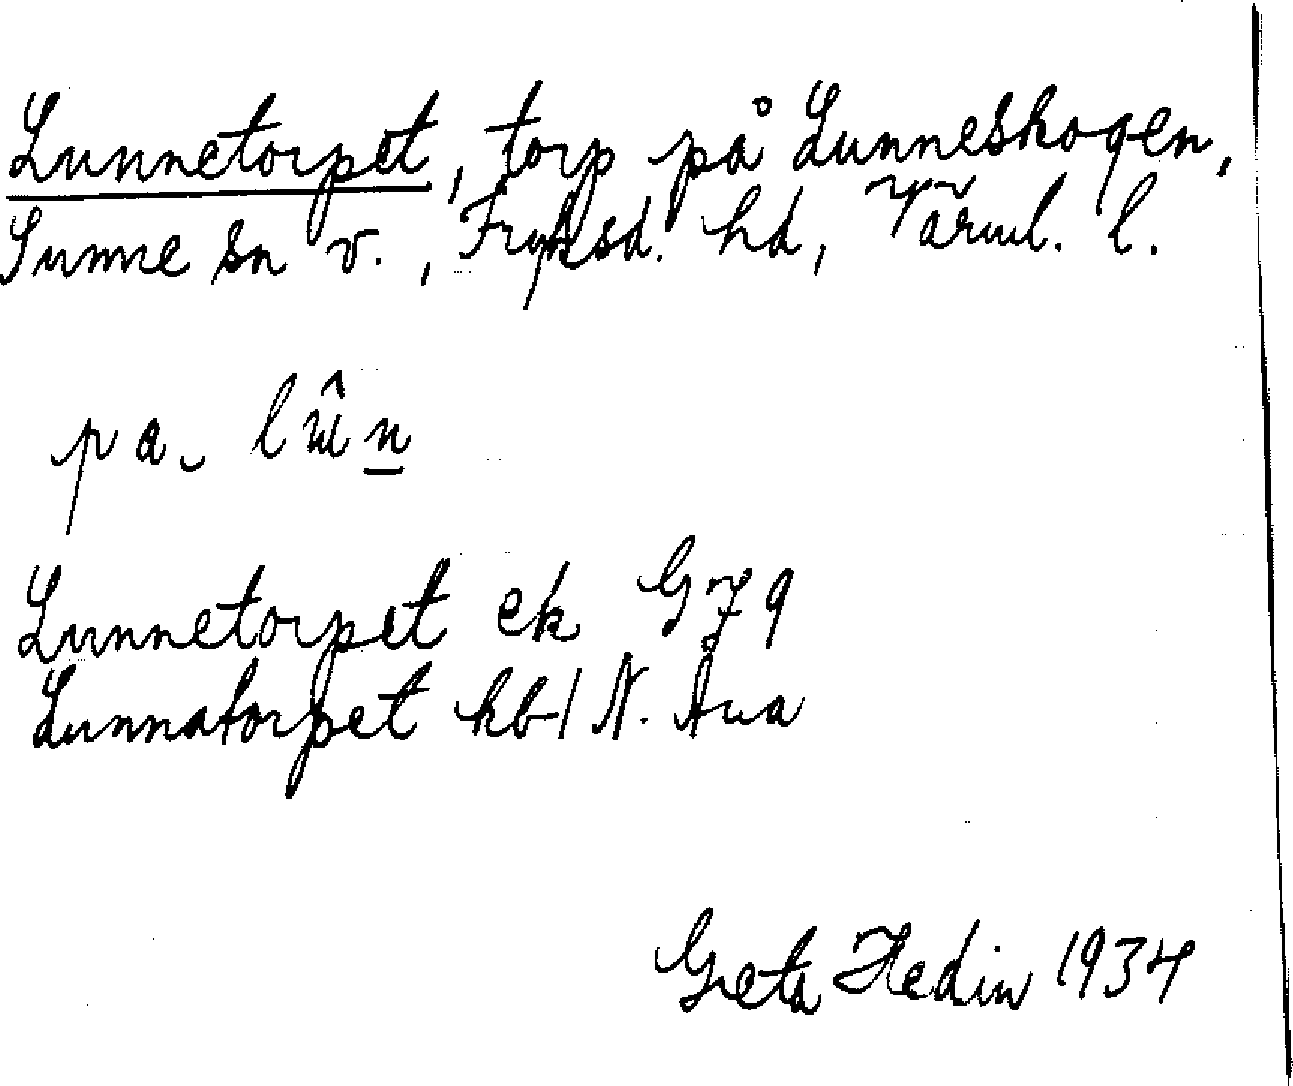 Lunnetorpet, torp på Lunneskogen,
Sunne sn v., Fryksd. hd, Värml. l.
pa. lûn
Lunnetorpet ek G79
Lunnatorpet hbl N. Åna
Greta Hedin 1934